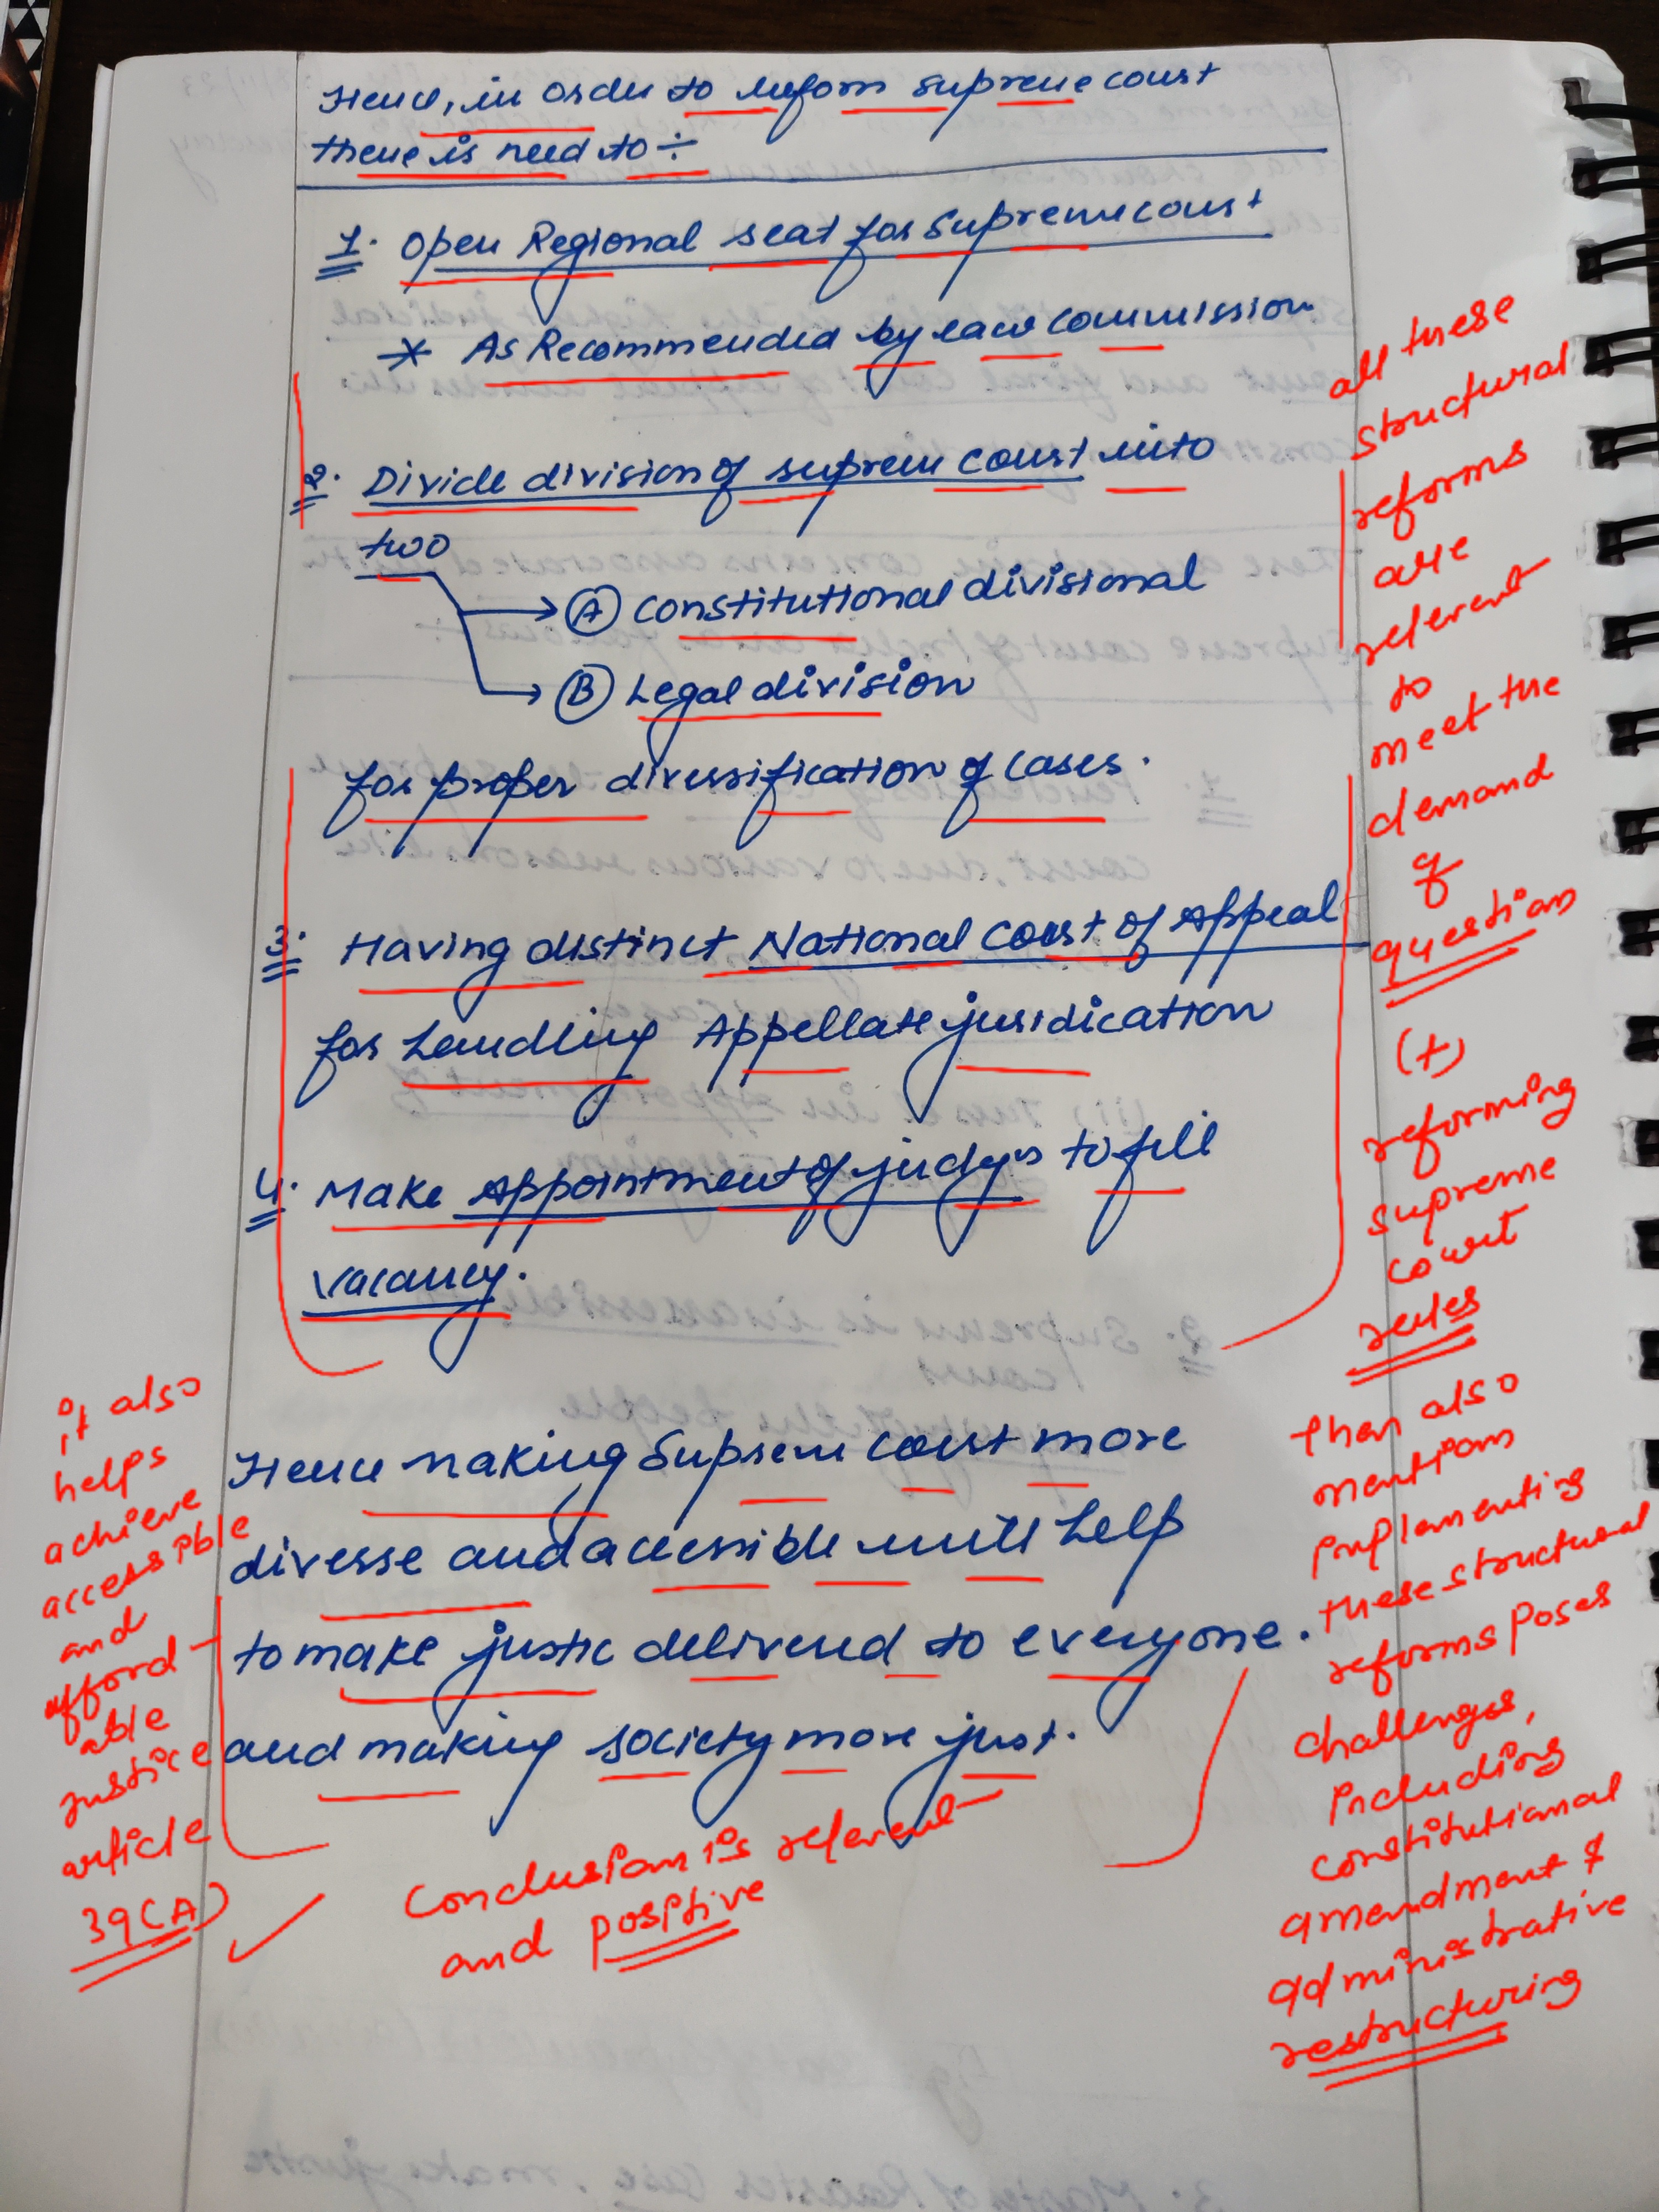 Hence, in order to reform supreme court
there is need to ÷
1. Open Regional seat for Supreme court
* As Recommended by law commission
2. Divide division of suprem court into
two
→ (A) constitutional divisional
→ (B) Legal division
for proper diversification of cases.
3. Having distinct National court of Appeal
for handling Appellate jurisdication
4. Make Appointment of judges to fill
vacancy.
Hence making Suprem court more
diverse and accessible will help
to make justic delivered to everyone.
and making society more just.
all these
structural
reforms
are
relevent
to
meet the
demand
of
question
(+)
reforming
supreme
court
rules
then also
mention
implementing
these structural
reforms poses
challenges,
including
constitutional
amendment &
administrative
restructuring
it also
helps
achieve
accessible
and
afford-
able
justice
article
39(A)
Conclusion is relevent
and positive